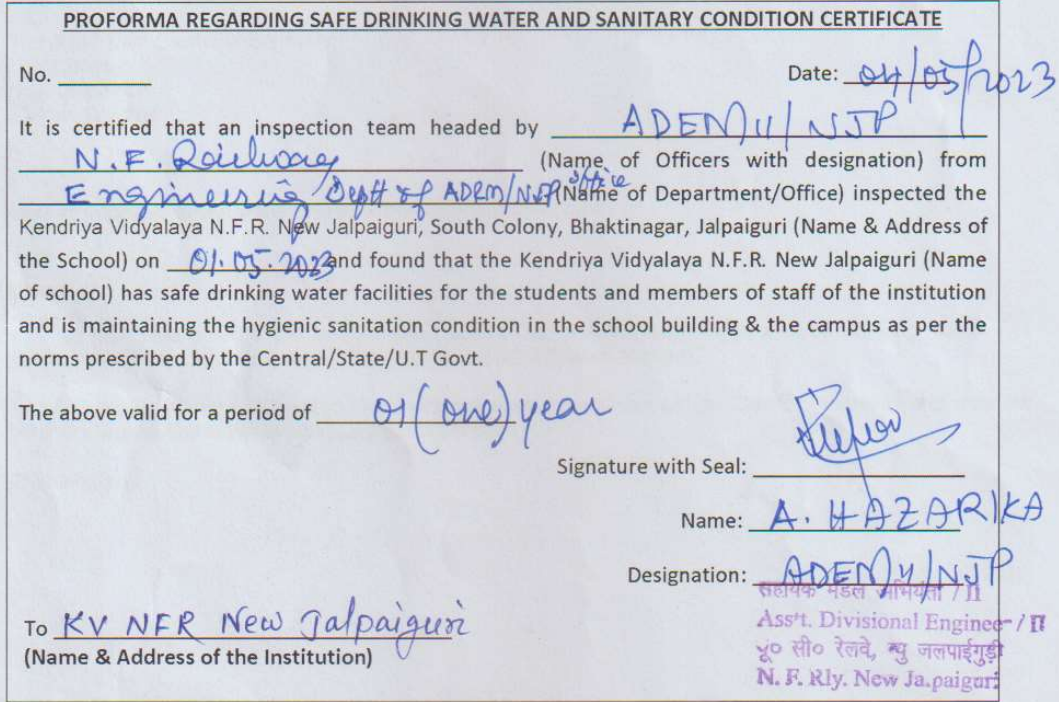 PROFORMA REGARDING SAFE DRINKING WATER AND SANITARY CONDITION CERTIFICATE
No. ________ Date: 04/05/2023
It is certified that an inspection team headed by ADEN/II/NJP
N.F. Railway (Name of Officers with designation) from
Engineering Deptt of ADEN/NJP office (Name of Department/Office) inspected the
Kendriya Vidyalaya N.F.R. New Jalpaiguri, South Colony, Bhaktinagar, Jalpaiguri (Name & Address of
the School) on 01.05.2023 and found that the Kendriya Vidyalaya N.F.R. New Jalpaiguri (Name
of school) has safe drinking water facilities for the students and members of staff of the institution
and is maintaining the hygienic sanitation condition in the school building & the campus as per the
norms prescribed by the Central/State/U.T Govt.
The above valid for a period of 01 (one) year
Signature with Seal:
Name: A. HAZARIKA
Designation: ADEN/II/NJP
सहायक मंडल अभियंता / II
Ass't. Divisional Engineer / II
पू० सी० रेलवे, न्यु जलपाईगुड़ी
N. F. Rly. New Ja.paiguri
To KV NFR New Jalpaiguri
(Name & Address of the Institution)